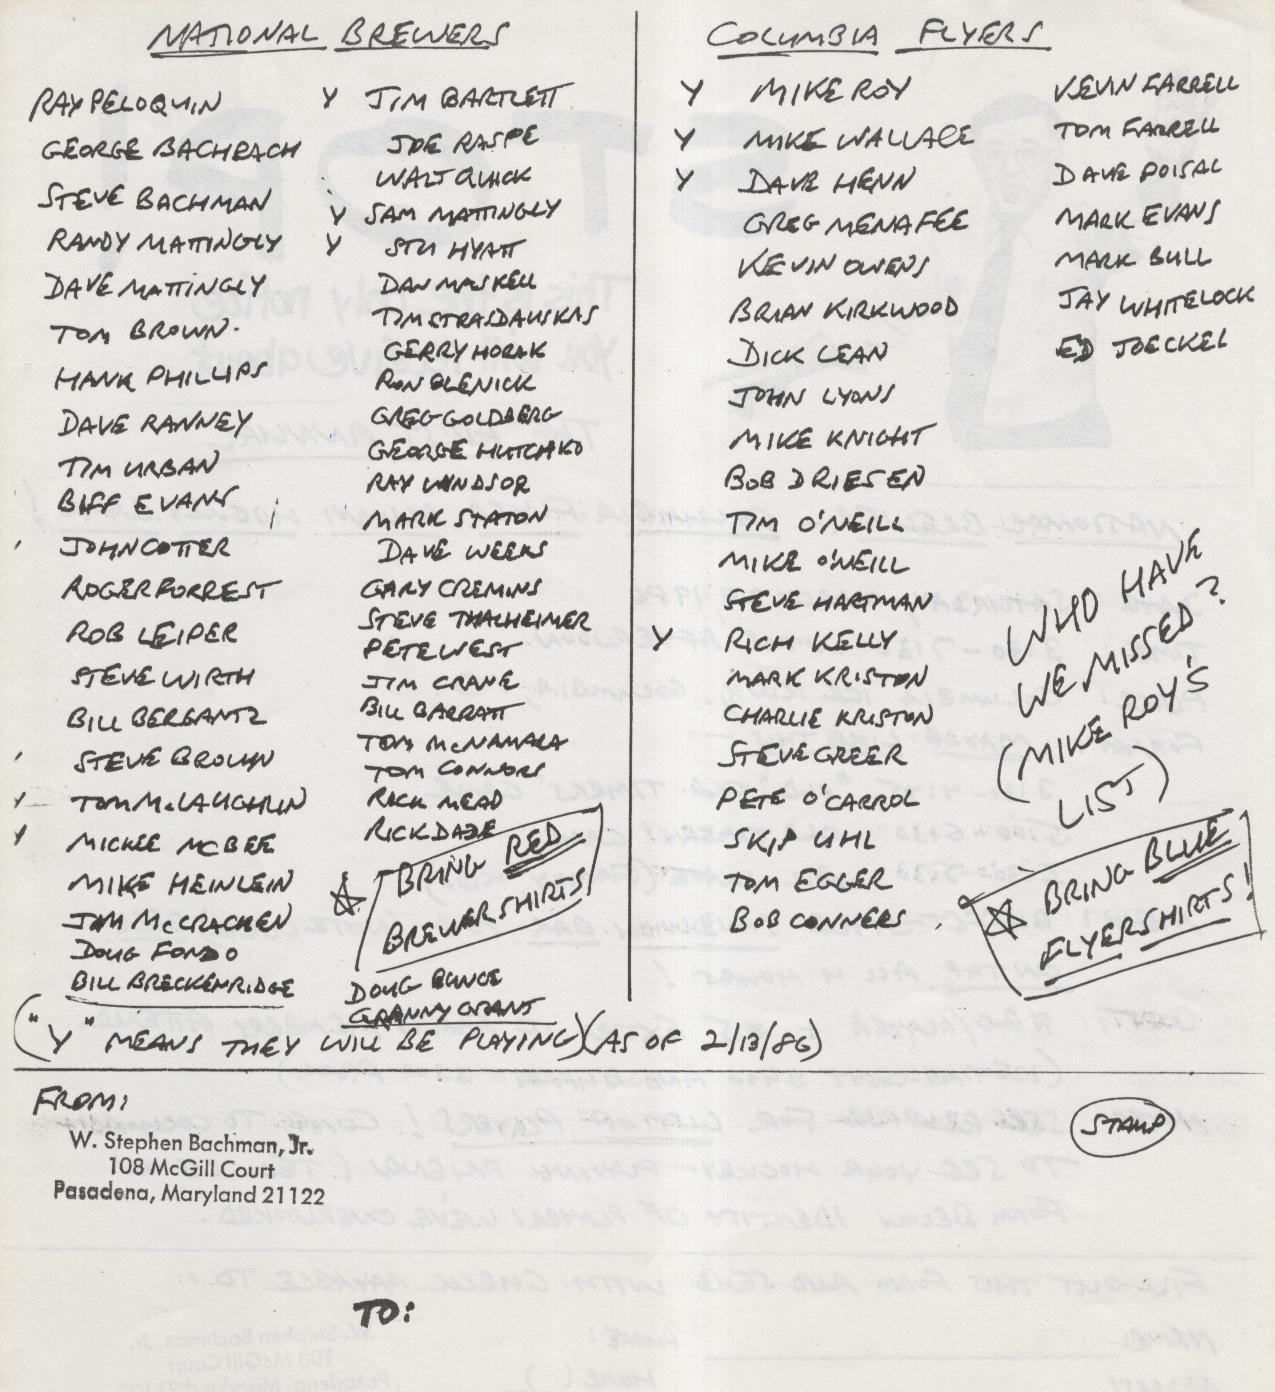 NATIONAL BREWERS
RAY PELOQUIN
GEORGE BACHRACH
STEVE BACHMAN
RANDY MATTINGLY
DAVE MATTINGLY
TOM BROWN.
HANK PHILLIPS
DAVE RANNEY
TIM URBAN
BIFF EVANS
JOHN COTTER
ROGER FORREST
ROB LEIPER
STEVE WIRTH
BILL BERGANTZ
STEVE BROWN
Y TOM McLAUGHLIN
Y MICKEE MCBEE
MIKE HEINLEIN
JIM McCRACKEN
DOUG FONDO
BILL BRECKENRIDGE
Y JIM BARTLETT
JOE RASPE
WALT QUICK
Y SAM MATTINGLY
Y STU HYATT
DAN MASKELL
TIM STRASDAUSKAS
GERRY HORAK
RON OLENICK
GREG GOLDBERG
GEORGE HUTCHKO
RAY WINDSOR
MARK STATON
DAVE WEEKS
GARY CREMINS
STEVE THALHEIMER
PETE WEST
JIM CRANE
BILL BARRATT
TOM McNAMARA
TOM CONNORS
RICK MEAD
RICK DAZE
BRING RED
BREWER SHIRTS
DOUG BUNCE
GRANNY GRANT
COLUMBIA FLYERS
Y MIKE ROY
Y MIKE WALLACE
Y DAVE HENN
GREG MENAFEE
KEVIN OWENS
BRIAN KIRKWOOD
DICK LEAN
JOHN LYONS
MIKE KNIGHT
BOB DRIESEN
TIM O'NEILL
MIKE O'NEILL
STEVE HARTMAN
Y RICH KELLY
MARK KRISTON
CHARLIE KRISTON
STEVE GREER
PETE O'CARROL
SKIP UHL
TOM EGGER
BOB CONNERS
KEVIN FARRELL
TOM FARRELL
DAVE POISAL
MARK EVANS
MARK BULL
JAY WHITELOCK
ED JOECKEL
WHO HAVE
WE MISSED?
(MIKE ROY'S
LIST)
BRING BLUE
FLYER SHIRTS!
("Y" MEANS THEY WILL BE PLAYING) (AS OF 2/13/86)
FROM:
W. Stephen Bachman, Jr.
108 McGill Court
Pasadena, Maryland 21122
STAMP
TO: